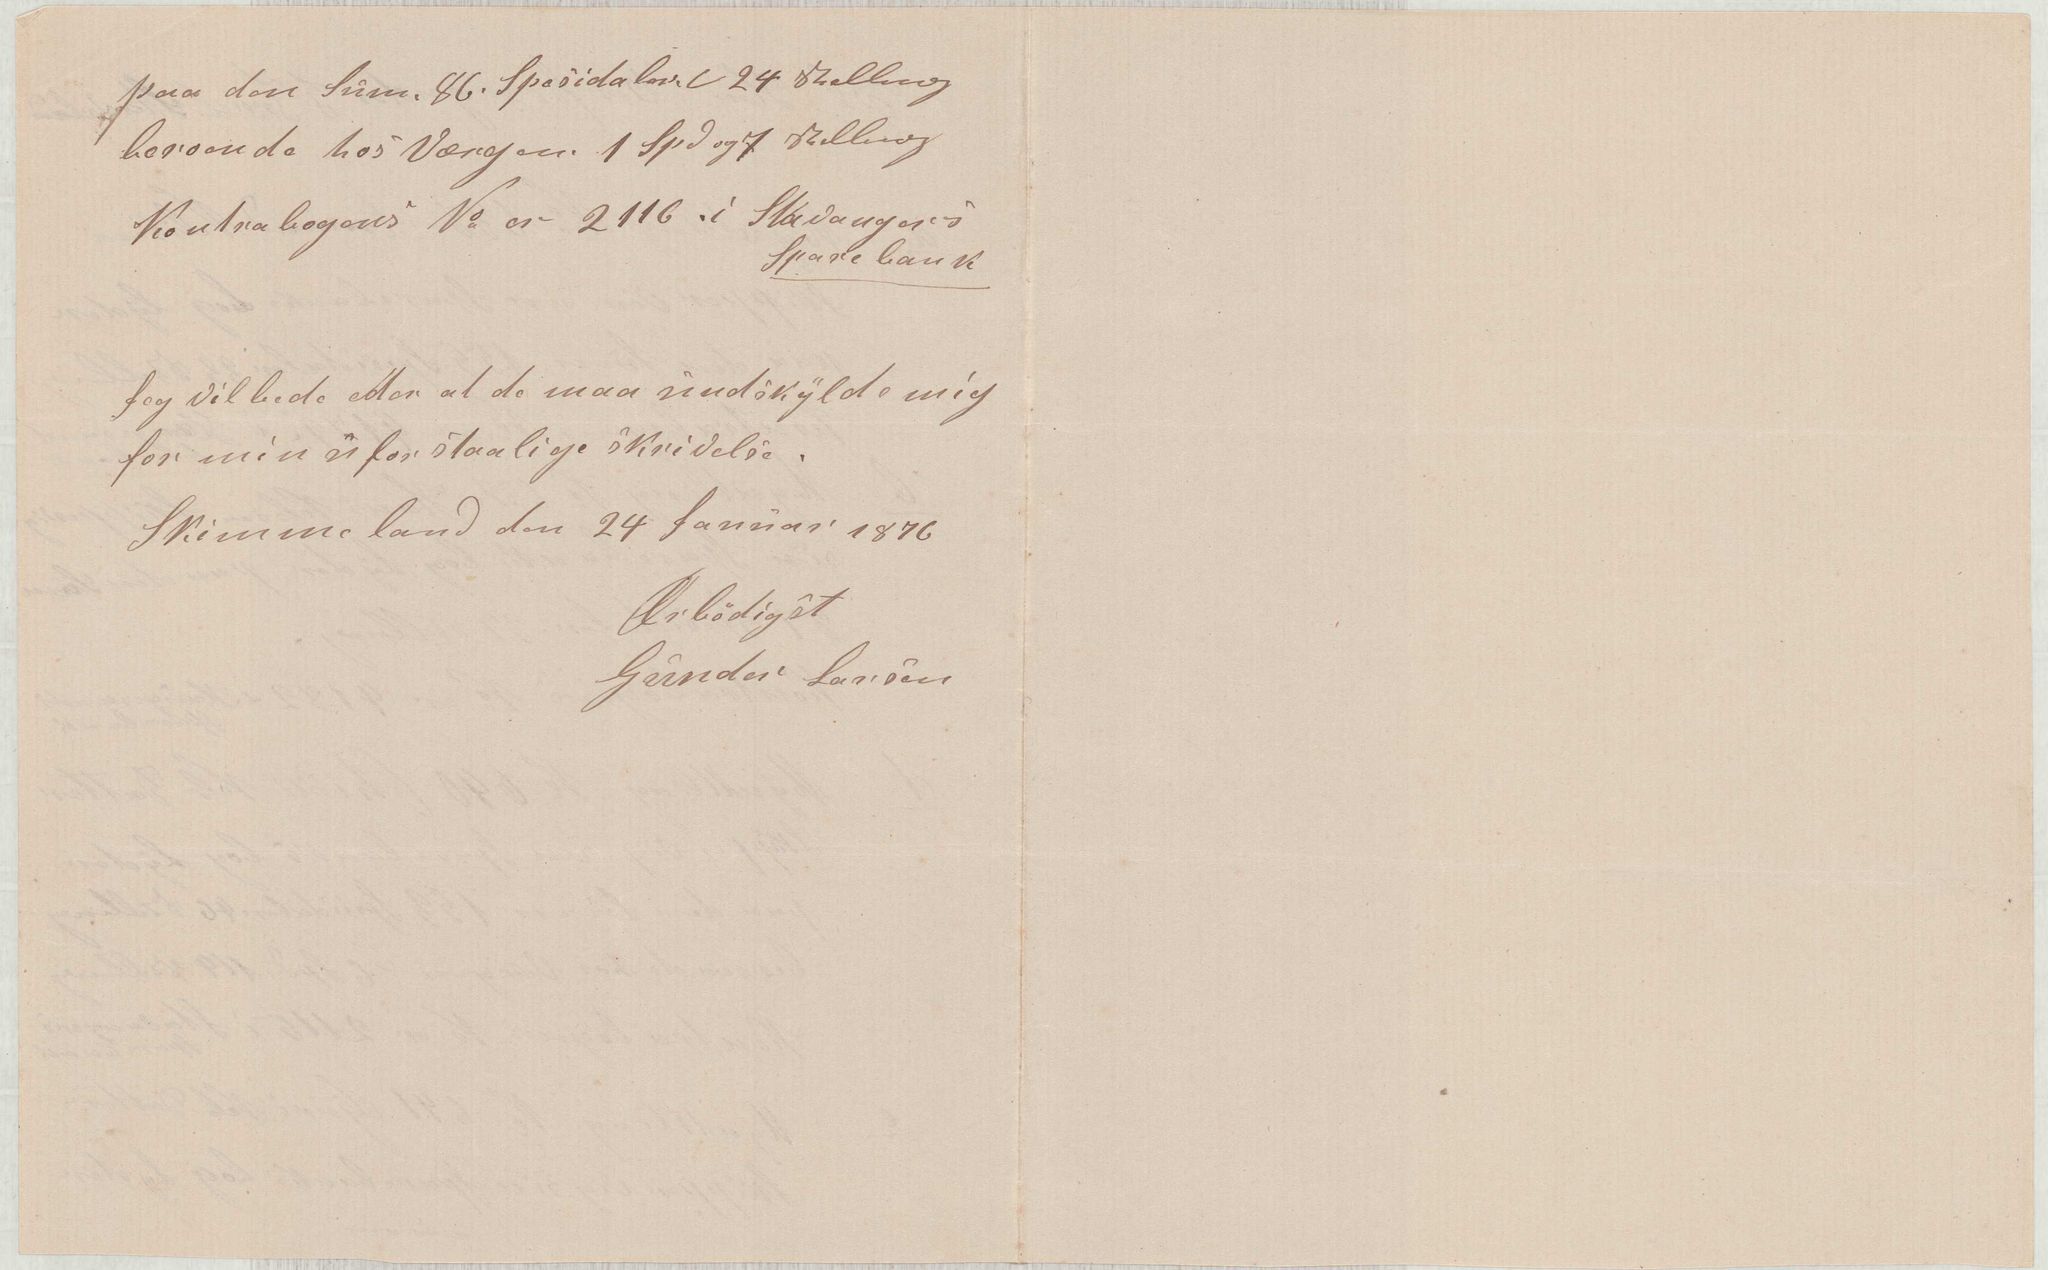 paa den Sum. 86. Spesidaler 24 Skelling
beroende hos Værgen. 1 Spd og 7 Skelling
Kontrabogens No er 2116 . i Stavangers
Sparebank
Jeg vil bede etter at de maa undskylde mig
for min uforstaalige skrivelse.
Skimmeland den 24 Januar 1876
Ærbödigst
Gunder Larsen